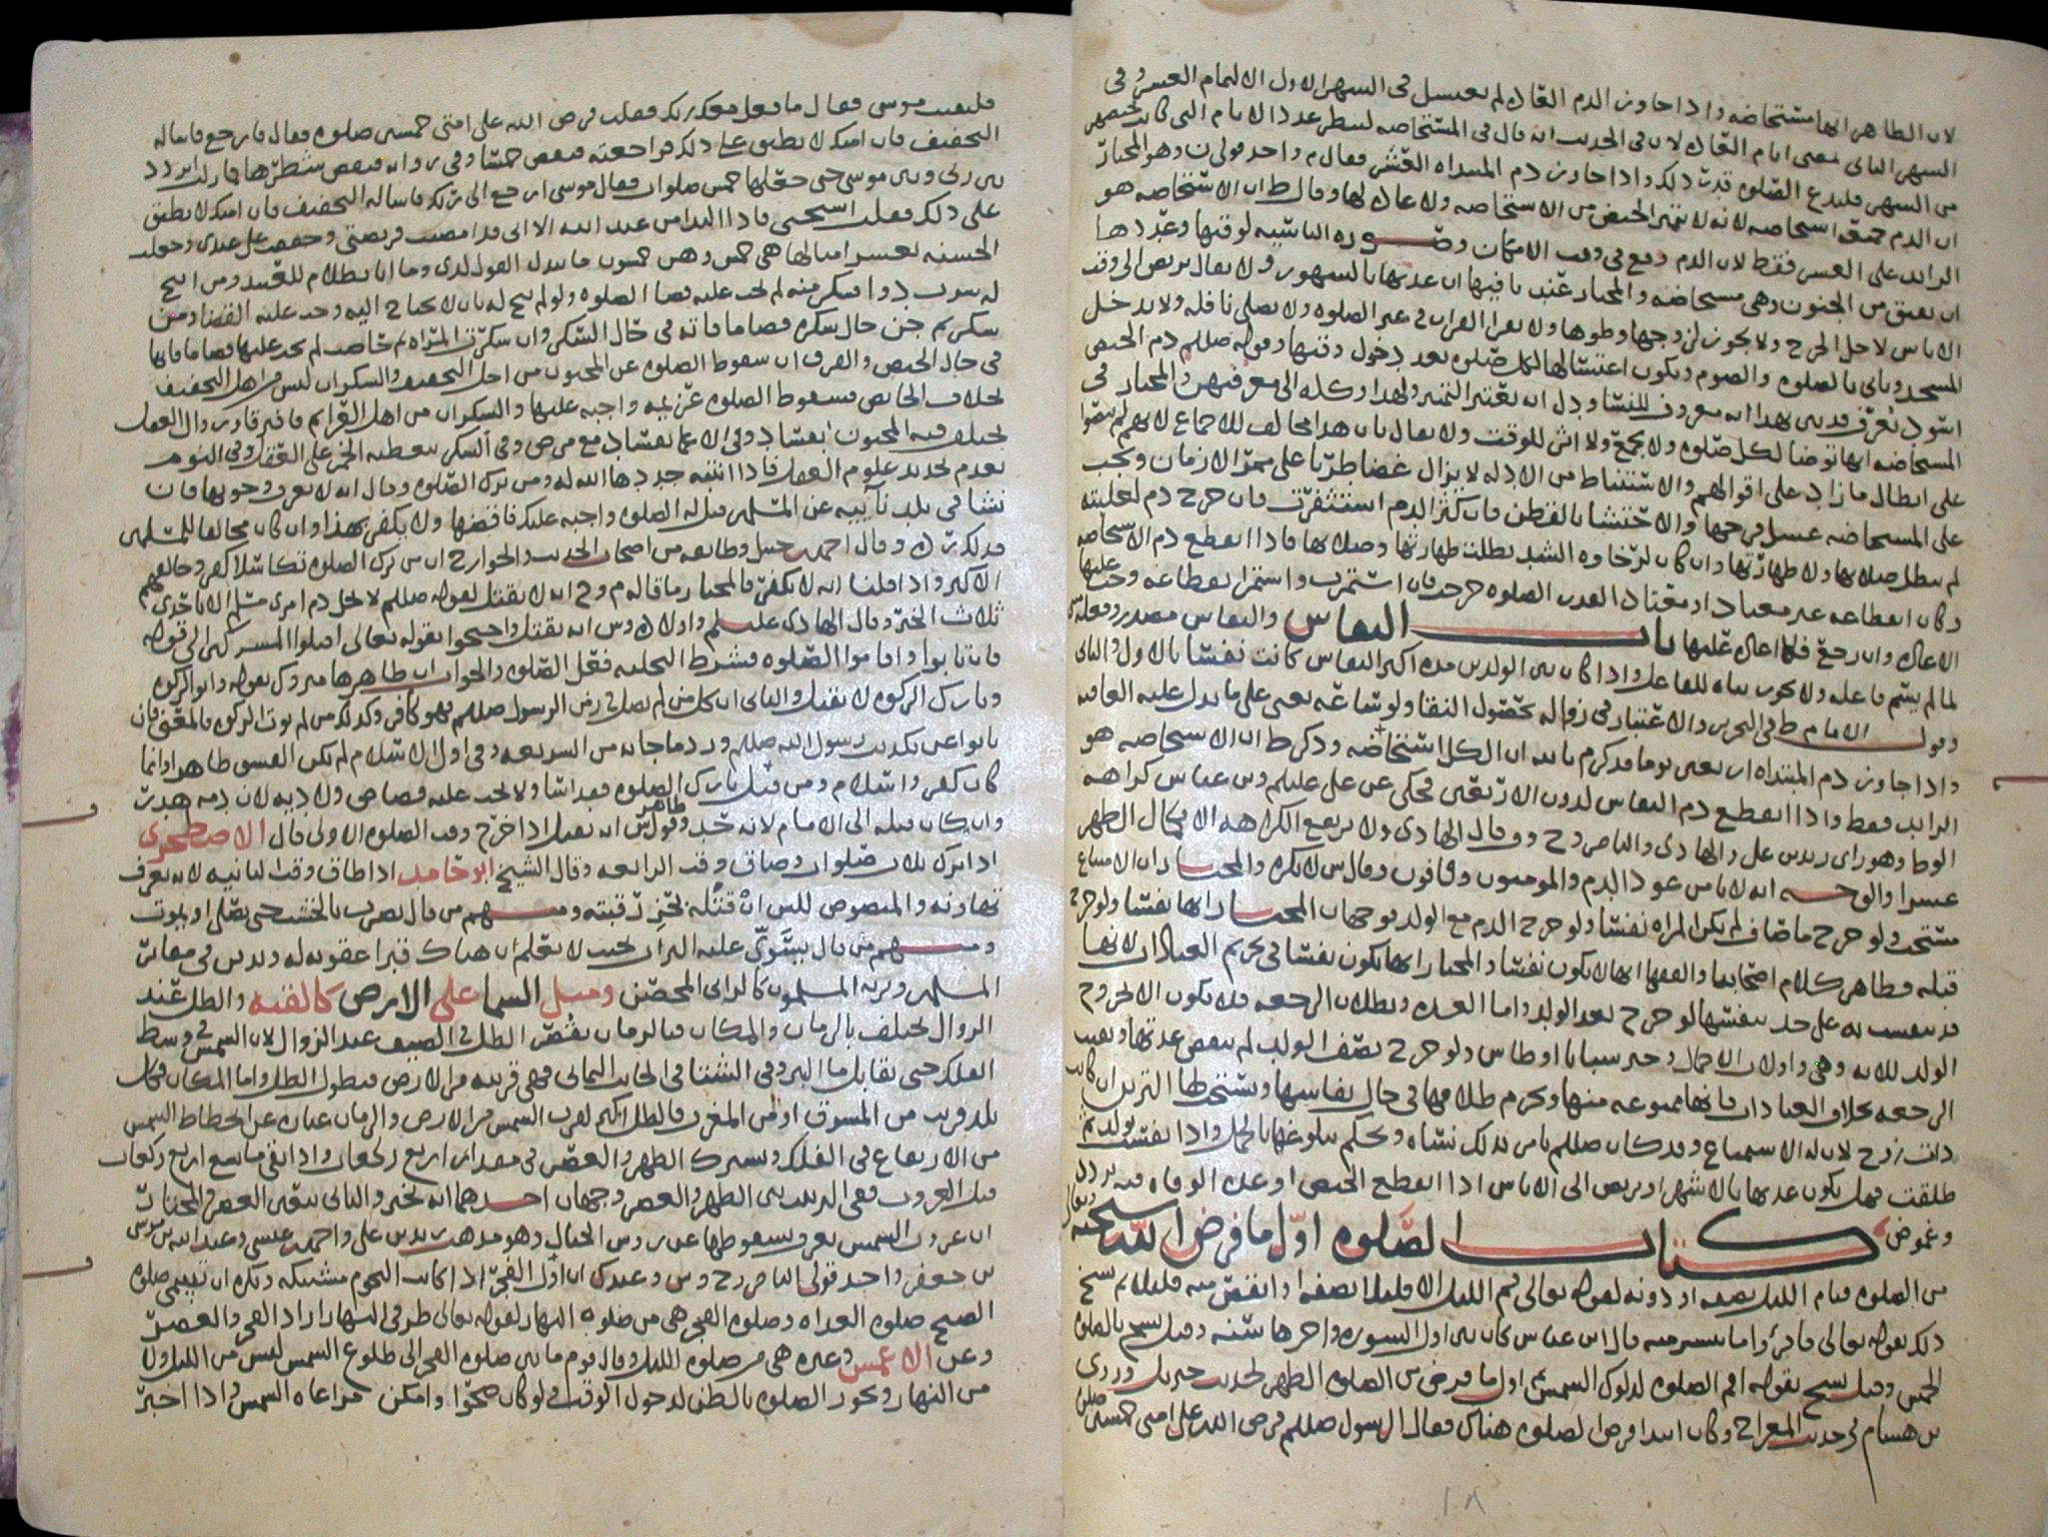 لان الطاهر انها مستحاضه واذا جاوز الدم العاده لم تغتسل في الشهر الاول الا لتمام العشر وفي
الشهر الثاني بمضي ايام العاده لان في الحديث انه قال في المستحاضه لتنظر عدد الايام التي كانت تحيضهن
من الشهر فلتدع الصلوه قدر ذلك واذا جاوز دم المبتداه العشر فقال م واحد قولي ن وهو المختار
ان الدم جميعه استحاضه لانه لا تتميز الحيض من الاستحاضه ولا عاده لها وقال ط ان الاستحاضه هو
الزايد على العشر فقط لان الدم وقع في وقت الامكان وصوره الناسيه لوقتها وعددها
ان تفيق من الجنون وهي مستحاضه والمختار عند باقيها ان عدتها بالشهور ولا يقال تربص الى وقت
الاياس لاجل الحرج ولا يجوز لزوجها وطوها ولا تقرا القران في غير الصلوه ولا تصلي نافله ولا تدخل
المسجد وتاتي بالصلوه والصوم ويكون اغتسالها لكل صلوه بعد دخول وقتها وقوله صللم دم الحيض
اسود يعرف يدل بهذا انه معروف للنسا ودل انه يعتبر التميز ولهذا وكله الى معرفتهن والمختار في
المستحاضه انها توضا لكل صلوه ولا تجمع ولا اثر للوقت ولا يقال بان هذا مخالف للاجماع لانهم لم يتفقوا
على ابطال ما زاد على اقوالهم والاستنباط من الادله لا يزال غضا طريا على ممر الازمان ويجب
على المستحاضه غسل فرجها والاحتشا بالقطن فان كثر الدم استثفرت فان خرج دم لغلبته
لم تبطل صلاتها ولا طهارتها وان كان لرخاوه الشد بطلت طهارتها وصلاتها فاذا انقطع دم الاستحاضه
وكان انقطاعه غير معتاد او معتاد العدت الصلوه خرجت فان استمرت واستمر انقطاعه وجب عليها
الاعاده وان رجع فلا اعاده عليها باب النفاس والنفاس مصدر وفعله
لما لم يسم فاعله ولا يجوز بناه للفاعل واذا كان بين الولدين مده اكثر النفاس كانت نفسا بالاول والثاني
وقول الامام ط في التحرير والاعتبار في زواله بحصول النقا ولو ساعه يعني على ما يدل عليه العاده
واذا جاوز دم المبتداه اربعين يوما فذكر م بالله ان الكل استحاضه وذكر ط ان الاستحاضه هو
الزايد فقط واذا انقطع دم النفاس لدون الاربعين فحكي عن علي عليلم وبن عباس كراهه
الوطا وهو راي زيد بن علي والهادي والناصر وح وو وقال الهادي ولا يرتفع الكراهه الا بكمال الطهر
عشرا والوجه انه لا يامن عود الدم والمومنون وقافون وقال ش لا يكره والمختار ان الامتناع
مستحب ولو خرج ماصاف لم تكن المراه نفسا ولو خرج الدم مع الولد فوجهان المختار انها نفسا ولو خرج
قبله فظاهر كلام اصحابنا والفقها انها لا تكون نفسا والمختار انها تكون نفسا في تحريم العبادات لانها
قد تنفست به على حد تنفسها لو خرج بعد الولد واما العده وبطلان الرجعه فلا يكون الا لخروج
الولد للايه وهي واولات الاحمال وخبر سبايا اوطاس ولو خرج نصف الولد لم تنقض عدتها وتعيب
الرجعه بخلاف العبادات فانها ممنوعه منها ويحرم طلاقها في حال نفاسها ويستحب لها التزين ان كانت
ذات زوج لان له الاستمتاع وقد كان صللم يامر بذلك نساه ويحكم ببلوغها بالحمل واذا نفست بولد ثم
طلقت فهل تكون عدتها بالاشهر او تربص الى الاياس اذا انقطع الحيض او عده الوفاه فيه تردد
وغموض كتاب الصلوه اول ما فرض الله سبحانه وتعالى
من الصلوه قيام الليل نصفه او دونه لقوله تعالى قم الليل الا قليلا نصفه او انقص منه قليلا ثم نسخ
ذلك بقوله تعالى فاقرؤا ما تيسر منه قال ابن عباس كان بين اول السوره واخرها سنه وقيل نسخ بالصلوه
الخمس وقيل نسخ بقوله اقم الصلوه لدلوك الشمس ثم اول ما فرض من الصلوه الظهر لحديث جبريل وروى
بن هشام في حديث المعراج وكان ابتدا فرض الصلوه هناك فقال الرسول صللم فرض الله على امتي خمسين صلوه
١٨
فلقيت موسى فقال ما فعل معك ربك فقلت فرض الله على امتي خمسين صلوه فقال فارجع فاساله
التخفيف فان امتك لا تطيق على ذلك فراجعته فنقص خمسا وفي روايه فنقص شطرها فما زلت اتردد
بين ربي وبين موسى حتى جعلها خمس صلوات فقال موسى ارجع الى ربك فاساله التخفيف فان امتك لا تطيق
على ذلك فقلت استحيي فاذا النداء من عند الله الا اني قد امضيت فريضتي وخففت على عبدي وجعلت
الحسنه بعشر امثالها هي خمس وهن خمسون ما يبدل القول لدي وما انا بظلام للعبيد ومن ابيح
له شرب دوا فسكر منه لم يجب عليه قضا الصلوه ولو لم يبح له بان لا يحتاج اليه وجب عليه القضا ومن
سكر ثم جن حال سكره قضا ما فاته في حال السكر وان سكرت المراه ثم حاضت لم يجب عليها قضا ما فاتها
في حال الحيض والفرق ان سقوط الصلوه عن المجنون من اجل التخفيف والسكران ليس من اهل التخفيف
بخلاف الحايض فسقوط الصلوه عزيمه واجبه عليها والسكران من اهل العزايم فافترقا وزوال العقل
يختلف فيه المجنون بفساد وفي الاغما بفساد مع مرض وفي السكر بتغطيه الخمر على العقل وفي النوم
بعدم تجديد علوم العقل فاذا انتبه جددها الله له ومن ترك الصلوه وقال انه لا يعرف وجوبها فان
نشا في بلد نائيه عن المسلمين قيل له الصلوه واجبه عليك فاقضها ولا يكفر بهذا وان كان مخالفا للمسلمين
فذلك ترك وقال احمد بن حنبل وطايفه من اصحاب الحديث والخوارج ان من ترك الصلوه تكاسلا كفر وخالفهم
الاكثر واذا قلنا انه لا يكفر فالمختار ما قاله م وح انه لا يقتل لقوله صللم لا يحل دم امرئ مسلم الا باحدى
ثلاث الخبر وقال الهادي عليلم واولاده وش انه يقتل واحتجوا بقوله تعالى اقتلوا المشركين الى قوله
فان تابوا واقاموا الصلوه فشرط التخليه فعل الصلوه والجواب ان ظاهرها متروك بقوله واتوا الزكوه
وتارك الزكوه لا يقتل والثاني ان كل من لم يصل في زمن الرسول صللم فهو كافر وكذلك من لم يوت الزكوه فالمعنى فان
تابوا عن تكذيب رسول الله صللم ورد ما جا به من الشريعه وفي اول الاسلام لم يكن الفسق ظاهرا وانما
كان كفر واسلام ومن قتل تارك الصلوه فقد اسا ولا يجب عليه قصاص ولا ديه لان دمه هدر
وان كان قتله الى الامام لانه حد وظاهر قول ش انه يقتل اذا خرج وقت الصلوه الاولى قال الاصطخري
اذا ترك ثلاث صلوات وضاق وقت الرابعه وقال الشيخ ابو حامد اذا ضاق وقت الثانيه لانه يعرف
تهاونه والمنصوص للش ان قتله بحز رقبته ومنهم من قال يضرب بالخشب حتى يصلي او يموت
ومنهم من قال يسوى عليه التراب بحيث لا يعلم ان هناك قبرا عقوبه له ويدفن في مقابر
المسلمين ويرثه المسلمون كالزاني المحصن ومثل السما على الارض كالقبه والظل عند
الزوال يختلف بالزمان والمكان فبالزمان يقصر الظل في الصيف عند الزوال لان الشمس في وسط
الفلك حتى تقابل ما البير وفي الشتا في الجانب اليماني فهي قريبه من الارض فيطول الظل واما المكان فكل
بلد قريب من المشرق او من المغرب فالظل اكثر لقرب الشمس من الارض والزمان عباره عن انحطاط الشمس
من الارتفاع في الفلك ويشترك الظهر والعصر في مقدار اربع ركعات واذا بقي ما يسع اربع ركعات
قبل الغروب ففي الترتيب بين الظهر والعصر وجهان احدهما انه يخير والثاني يتعين العصر والمختار
ان غروب الشمس يعرف بسقوطها عن رووس الجبال وهو مذهب زيد بن علي واحمد بن عيسى وعبد الله بن موسى
بن جعفر واحد قولي الناصر وح وش وعندك ان اول الفجر اذا كانت النجوم مشتبكه ويكره ان تسمى صلوه
الصبح صلوه الغداه وصلوه الفجر هي من صلوه النهار لقوله تعالى طرفي النهار اراد الفجر والعصر
وعن الاعمش وغيره هي من صلوه الليل وقال قوم ما بين صلوه الفجر الى طلوع الشمس ليس من الليل ولا
من النهار ويجوز الصلوه بالظن لدخول الوقت ولو كان صحوا وامكن مراعاه الشمس واذا اخبر